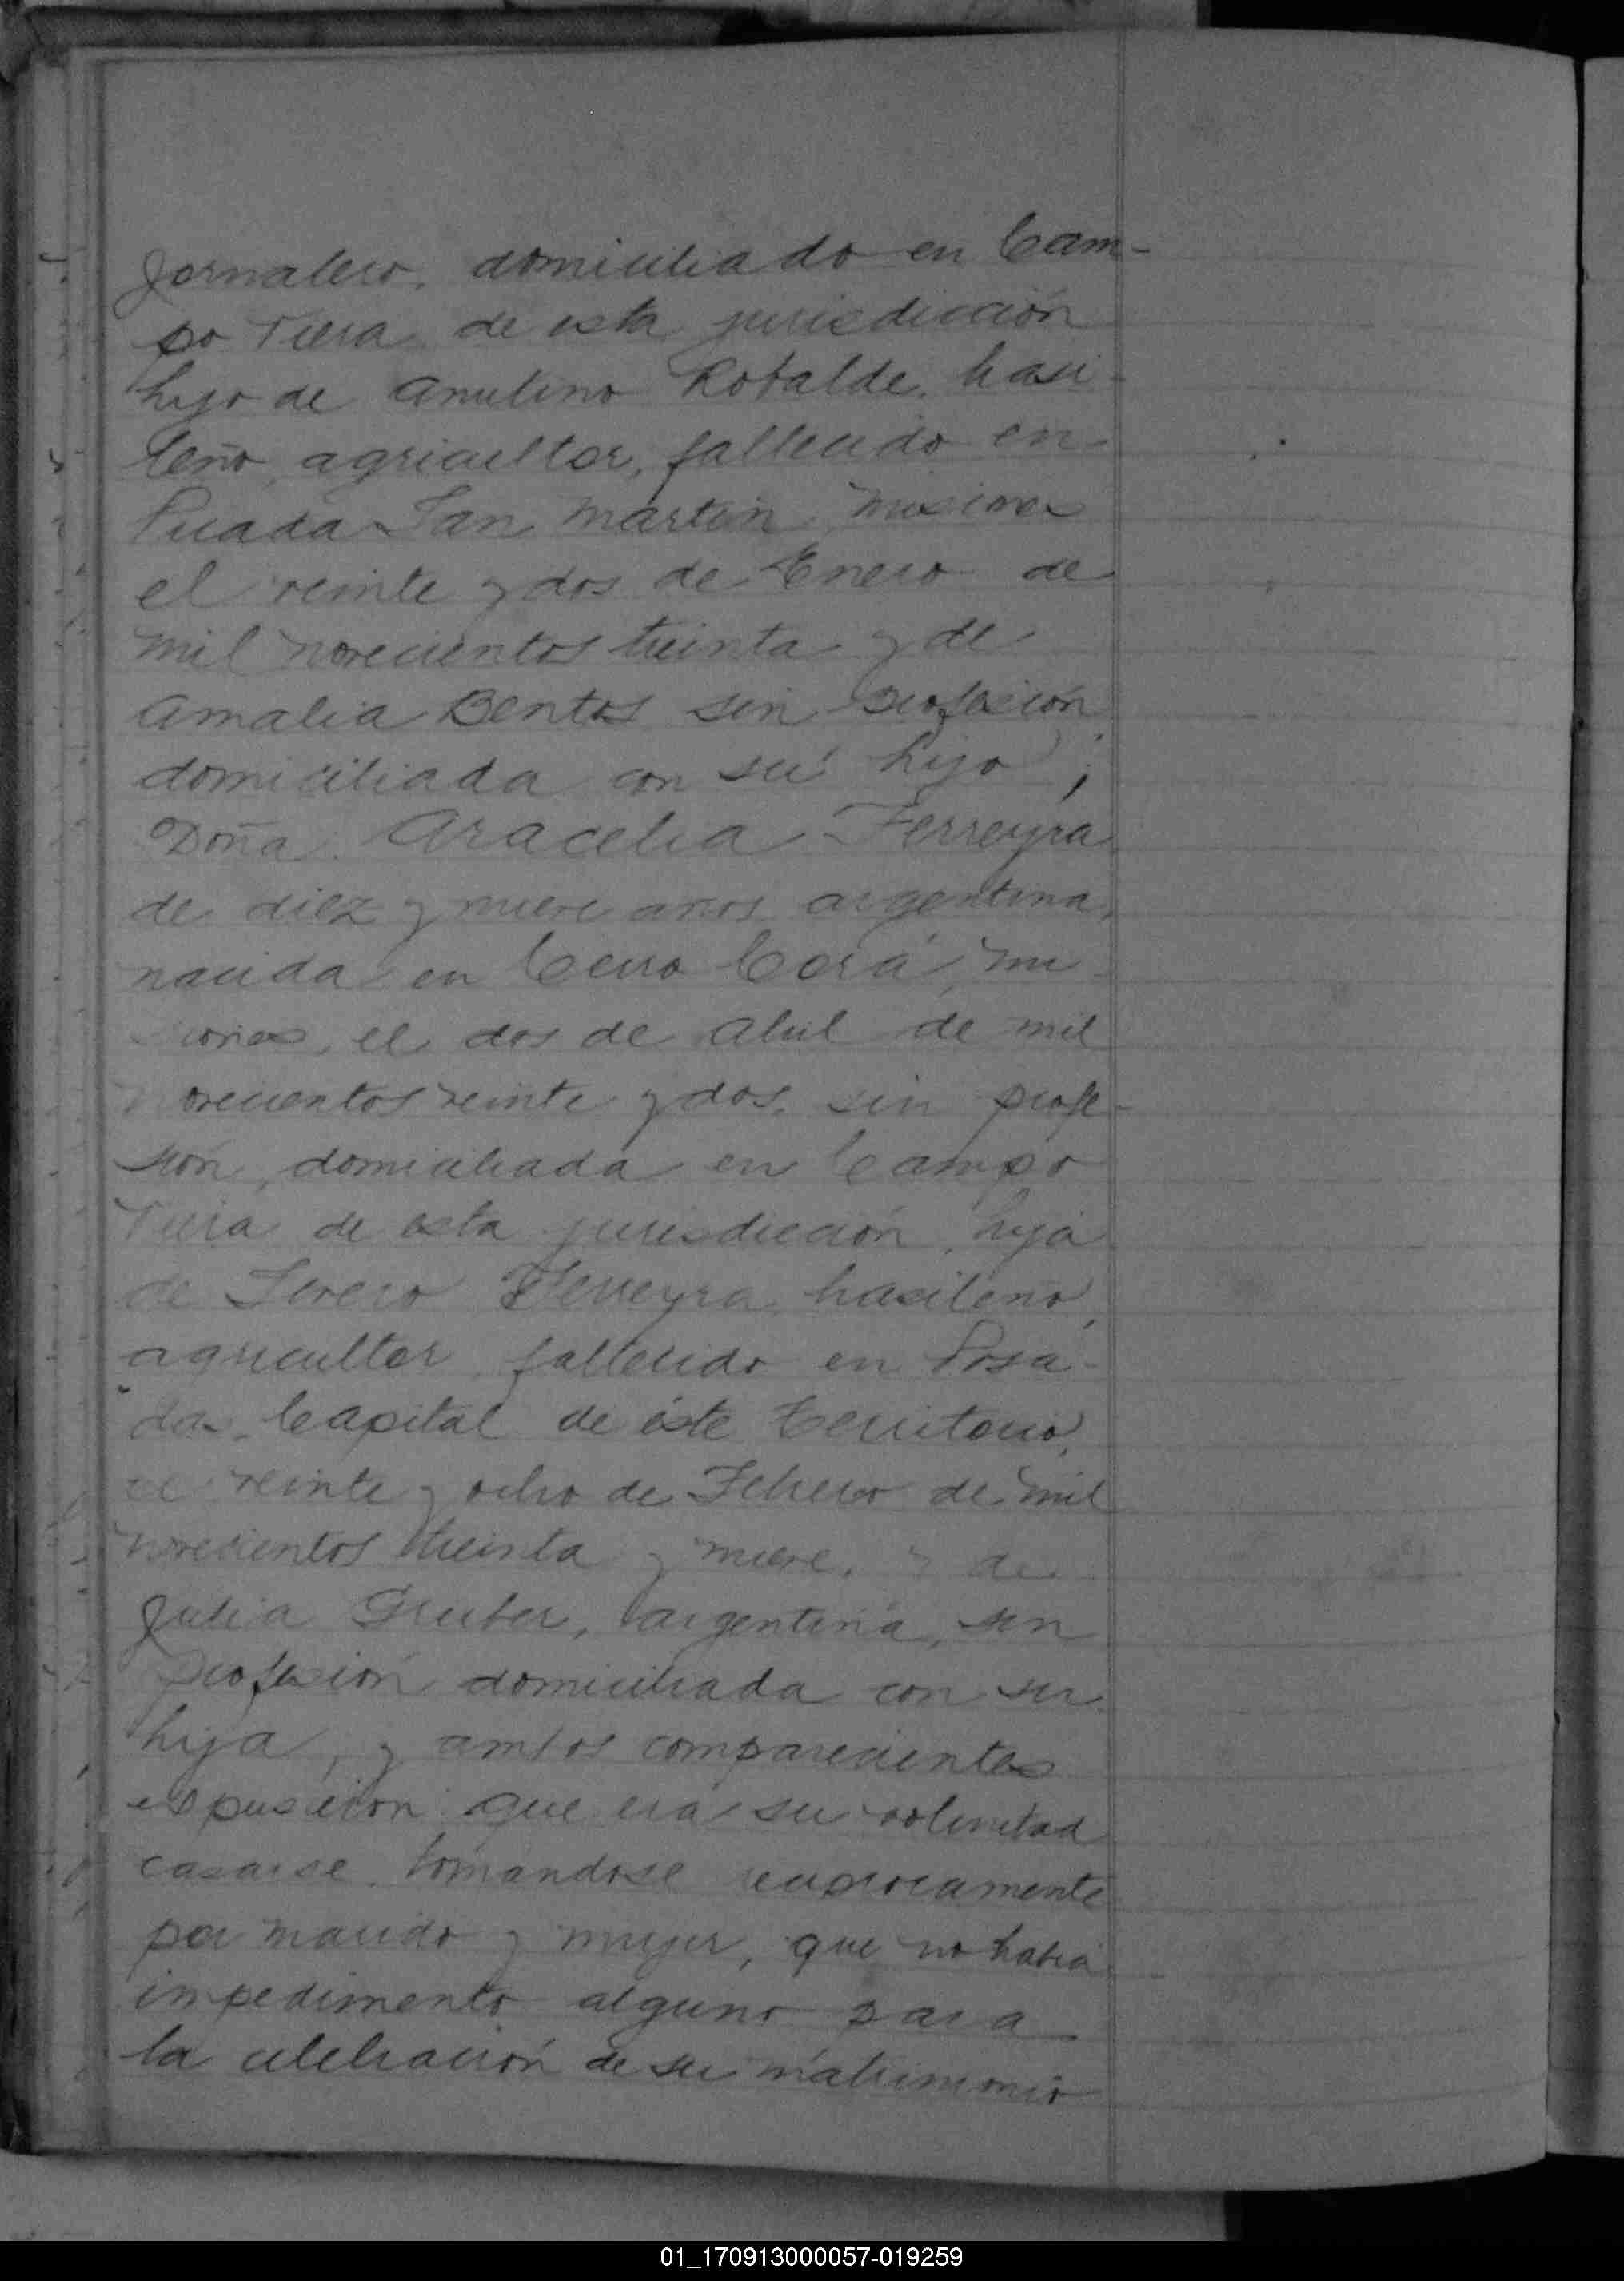 Jornalero, domiciliado en Cam-
po Viera de esta jurisdicción
hijo de Anulino Robalde, brasi-
leño, agricultor, fallecido en
Picada San Martin, Misiones
el veinte y dos de Enero de
mil novecientos treinta y de
Amalia Bentos sin profesión
domiciliada con su hijo;
Doña Aracelia Ferreyra
de diez y nueve años argentina,
nacida en Cerro Corá, Mi-
siones, el dos de Abril de mil
novecientos veinte y dos, sin profe-
sión, domiciliada en Campo
Viera de esta jurisdicción, hija
de Severo Ferreyra, brasileño,
agricultor, fallecido en Posa-
das, Capital de éste Territorio,
el veinte y ocho de Febrero de mil
novecientos treinta y nueve, y de
Julia Gruber, argentina, sin
profesión domiciliada con su
hija, y ambos comparecientes
expusieron que era su voluntad
casarse tomandose reciprocamente
por marido y mujer, que no habia
impedimento alguno para
la celebración de su matrimonio
01_170913000057-019259